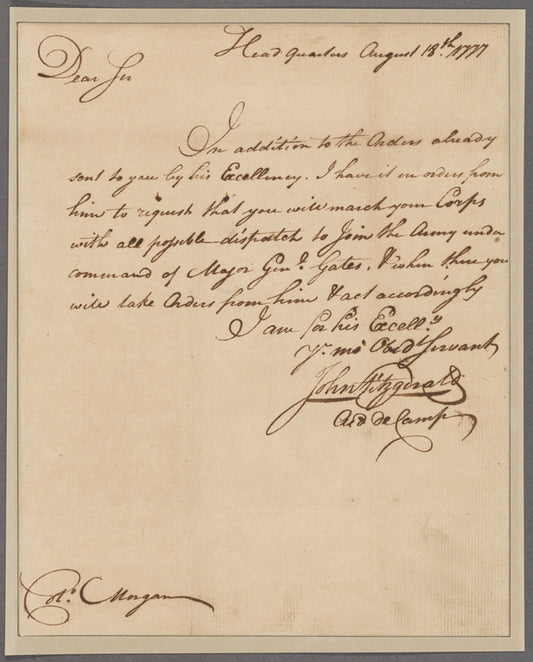 Head Quarters August 18.th 1777
Dear Sir
In addition to the Orders already
sent to you by his Excellency. I have it in orders from
him to request that you will march your Corps
with all possible dispatch to Join the Army under
command of Major Gen.l Gates, & when there you
will take Orders from him & act accordingly
I am for his Excell.y
Y.r mo Obed.t Servant
John Fitzgerald
Aid de Camp
Col.o Morgan